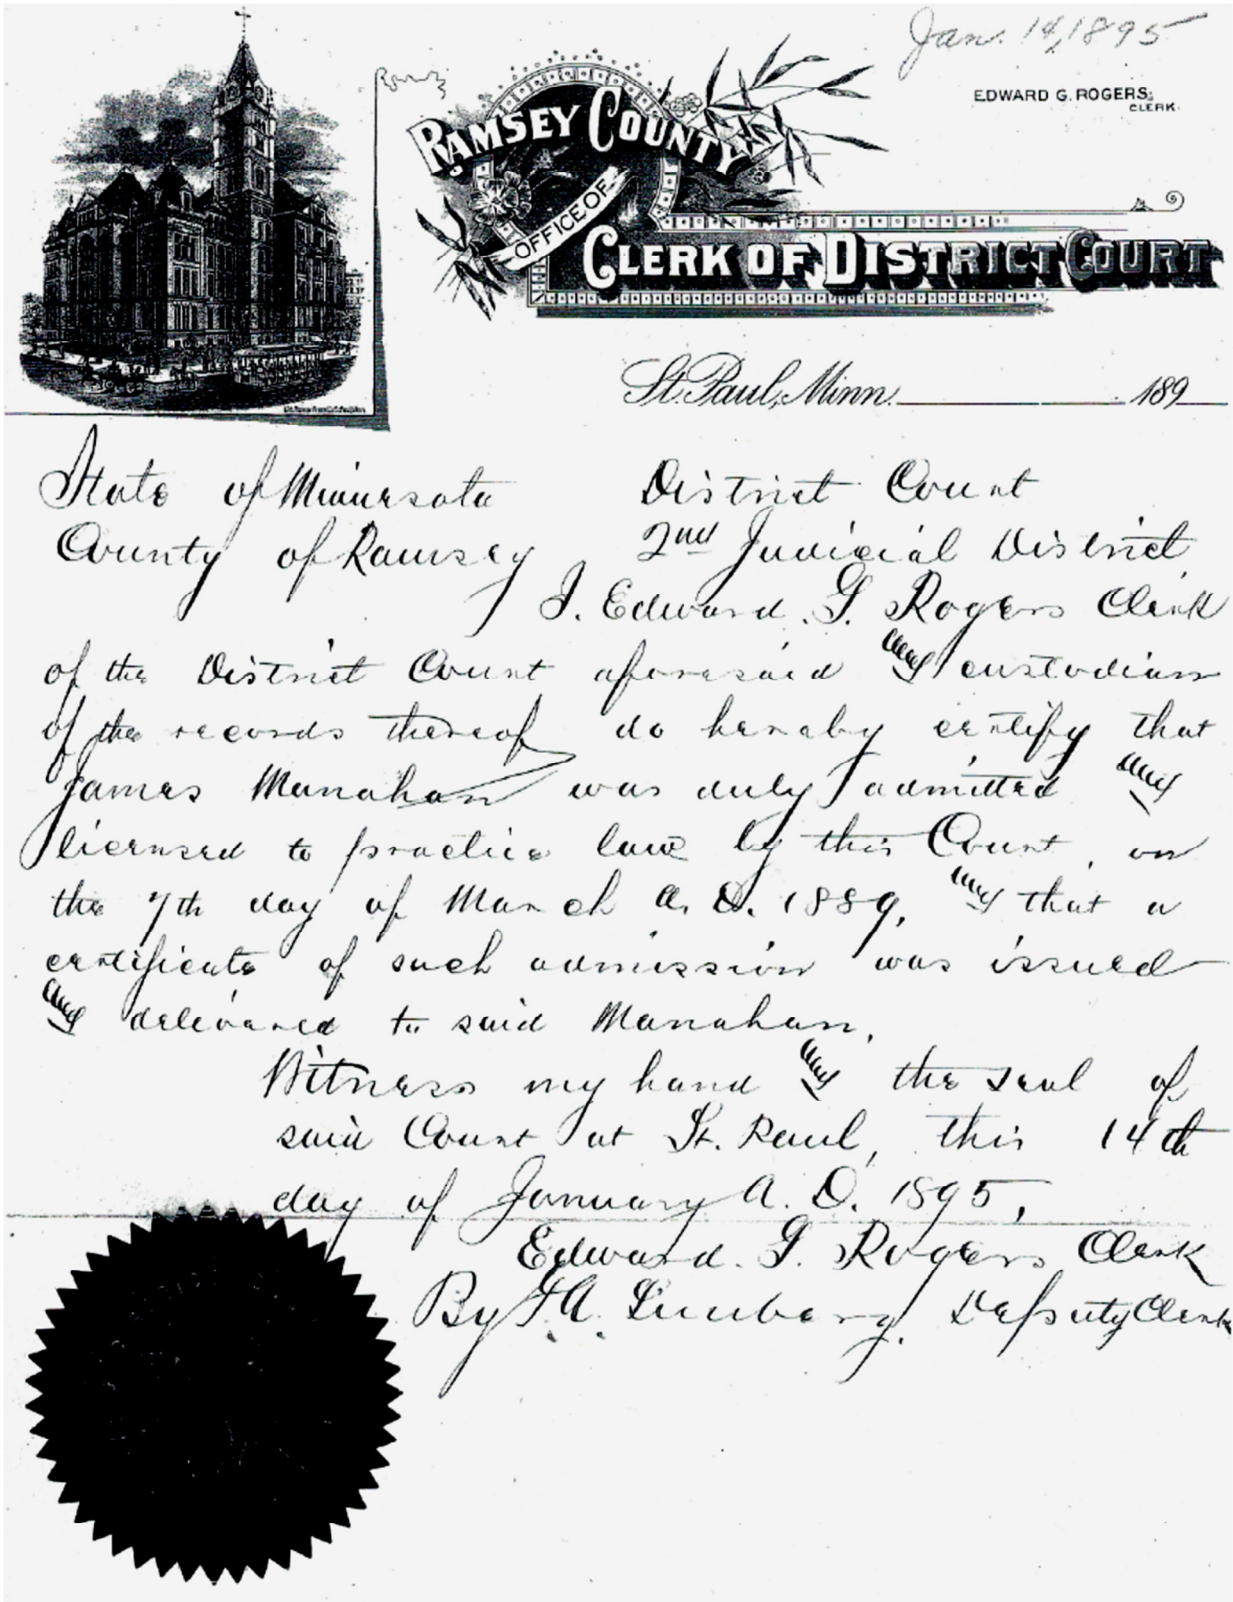 Jan. 14, 1895
EDWARD G. ROGERS,
CLERK.
RAMSEY COUNTY
OFFICE OF
CLERK OF DISTRICT COURT
St. Paul, Minn. 189
State of Minnesota District Court
County of Ramsey 2nd Judicial District
I. Edward. G. Rogers Clerk
of the District Court aforesaid and custodian
of the records thereof do hereby certify that
James Manahan was duly admitted and
licensed to practice law by this Court, on
the 7th day of March A. D. 1889, and that a
certificate of such admission was issued
and delivered to said Manahan.
Witness my hand and the seal of
said Court at St. Paul, this 14th
day of January A. D. 1895,
Edward. G. Rogers Clerk
By Deputy Clerk